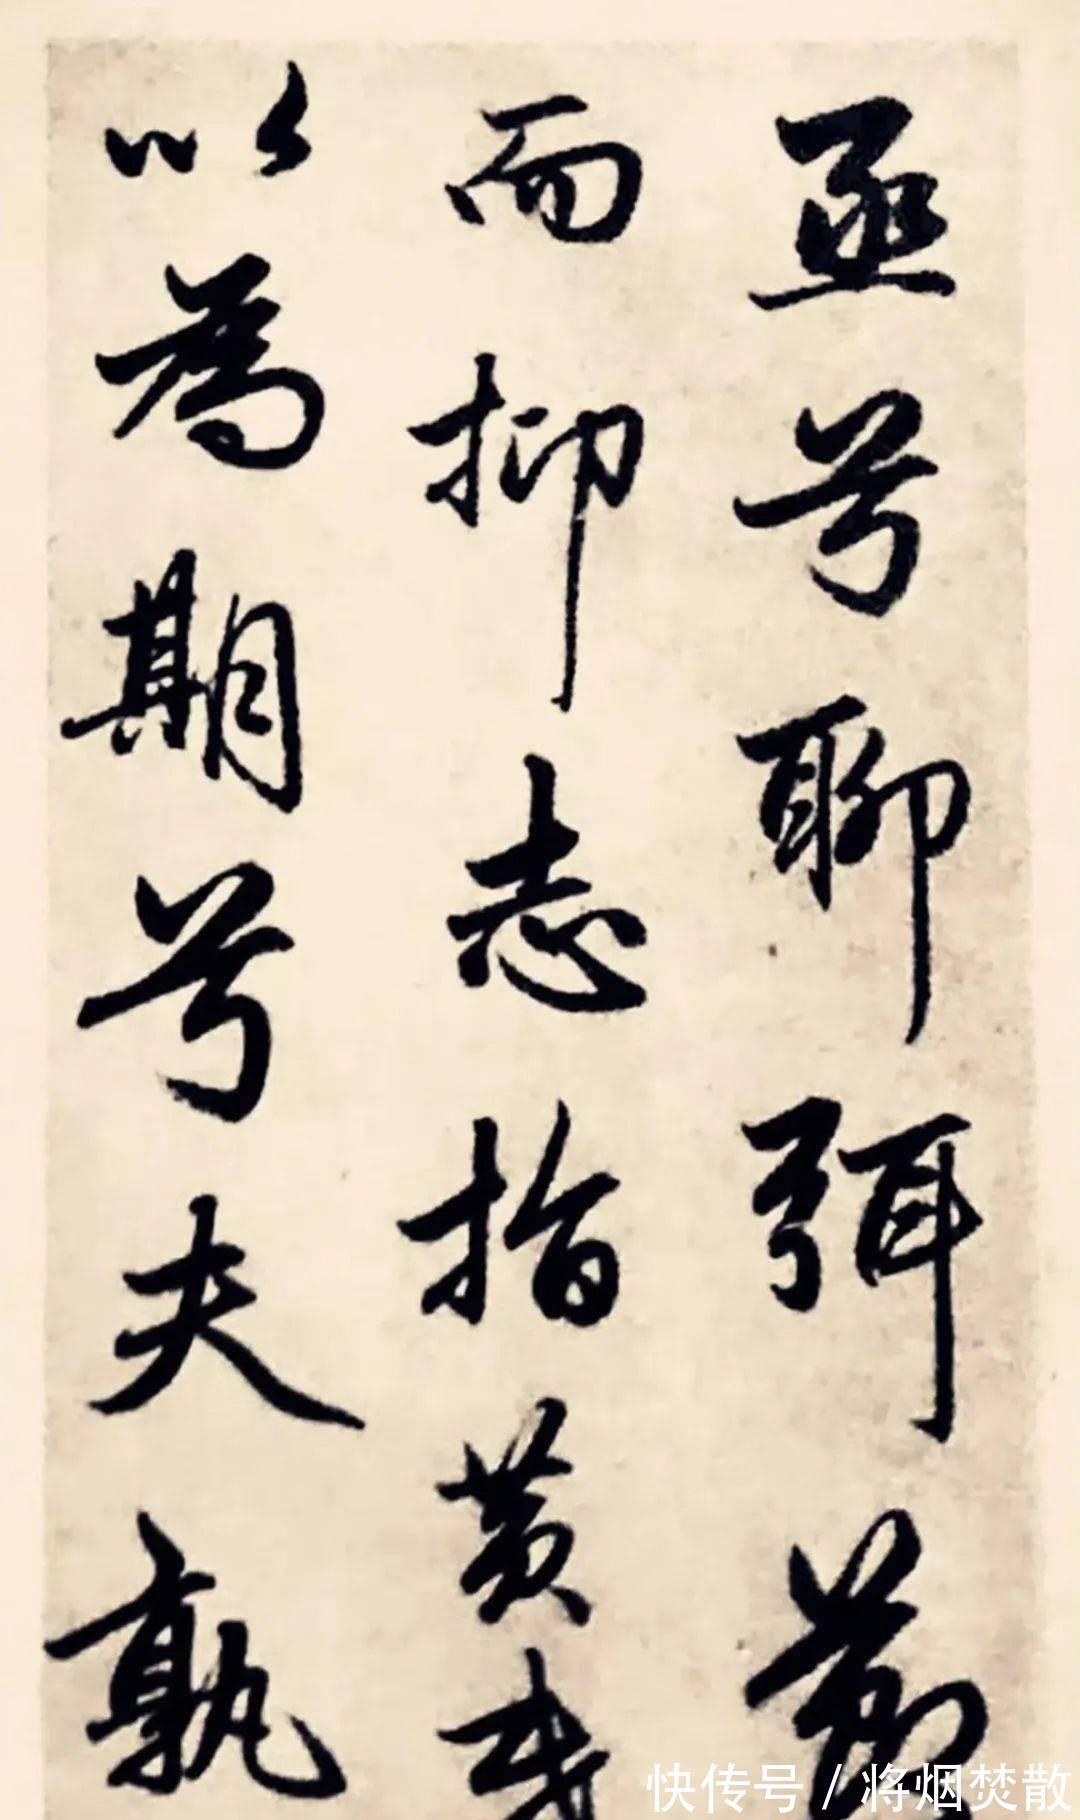 亟兮聊弭
而抑志指黄
以為期兮夫孰
快传号 / 将烟焚散